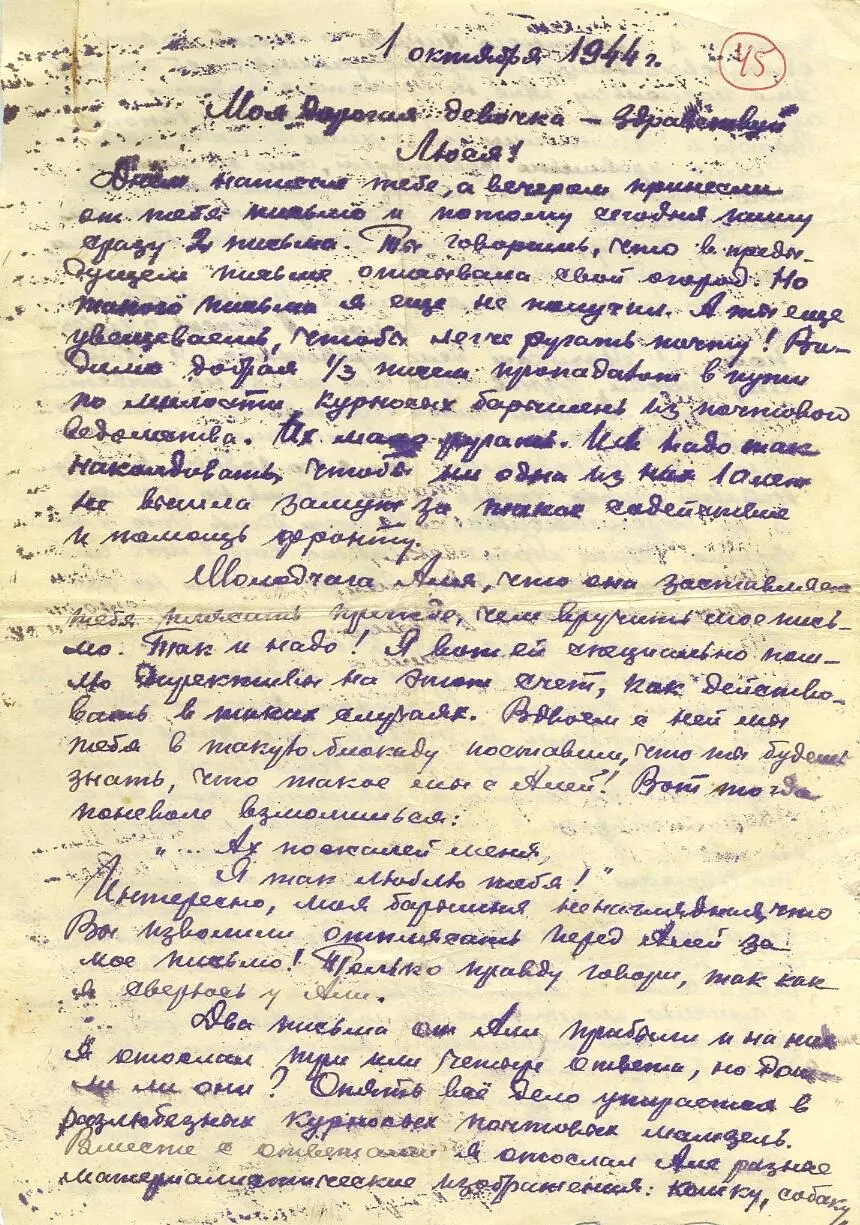 1 октября 1944 г.
45
Моя дорогая девочка – здравствуй
Люся!
Днём написал тебе, а вечером принесли
от тебя письмо и потому сегодня пишу
сразу 2 письма. Ты говоришь, что в преды-
дущем письме описывала свой огород. Но
такого письма я еще не получил. А ты еще
увещеваешь, чтобы легче ругать почту! Ви-
димо добрая 1/3 писем пропадают в пути
по милости курносых барышень из почтового
ведомства. Их мало ругать. Им надо так
наколдовать, чтобы ни одна из них 10 лет
не вышла замуж за такое содействие
и помощь фронту.
Молодчага Аля, что она заставляет
тебя плясать прежде, чем вручить мое пись-
мо. Так и надо! Я вот ей специально пош-
лю директивы на этот счет, как действо-
вать в таких случаях. Вдвоем с ней мы
тебя в такую блокаду поставим, что ты будешь
знать, что такое мы с Алей! Вот тогда
поневоле взмолишься:
"... Ах пожалей меня,
Я так люблю тебя!"
Интересно, моя барышня ненаглядная, что
Вы изволили отплясать перед Алей за
мое письмо! Только правду говори, так как
я сверюсь у Али.
Два письма от Али прибыли и на них
я отослал три или четыре ответа, но дош-
ли ли они? Опять всё дело упирается в
разлюбезных курносых почтовых мамзель.
Вместе с ответами я отослал Але разные
материалистические изображения: кошку, собаку